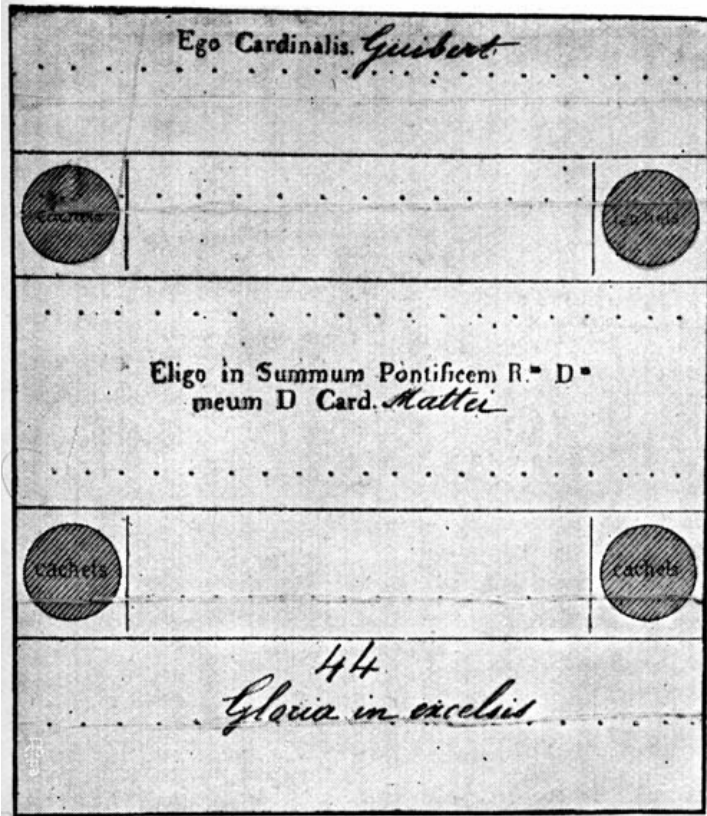 Ego Cardinalis. Guibert
cachets
cachets
Eligo in Summum Pontificem R.ᵐ Dᵐ
meum D Card. Mattei
cachets
cachets
44
Gloria in excelsis